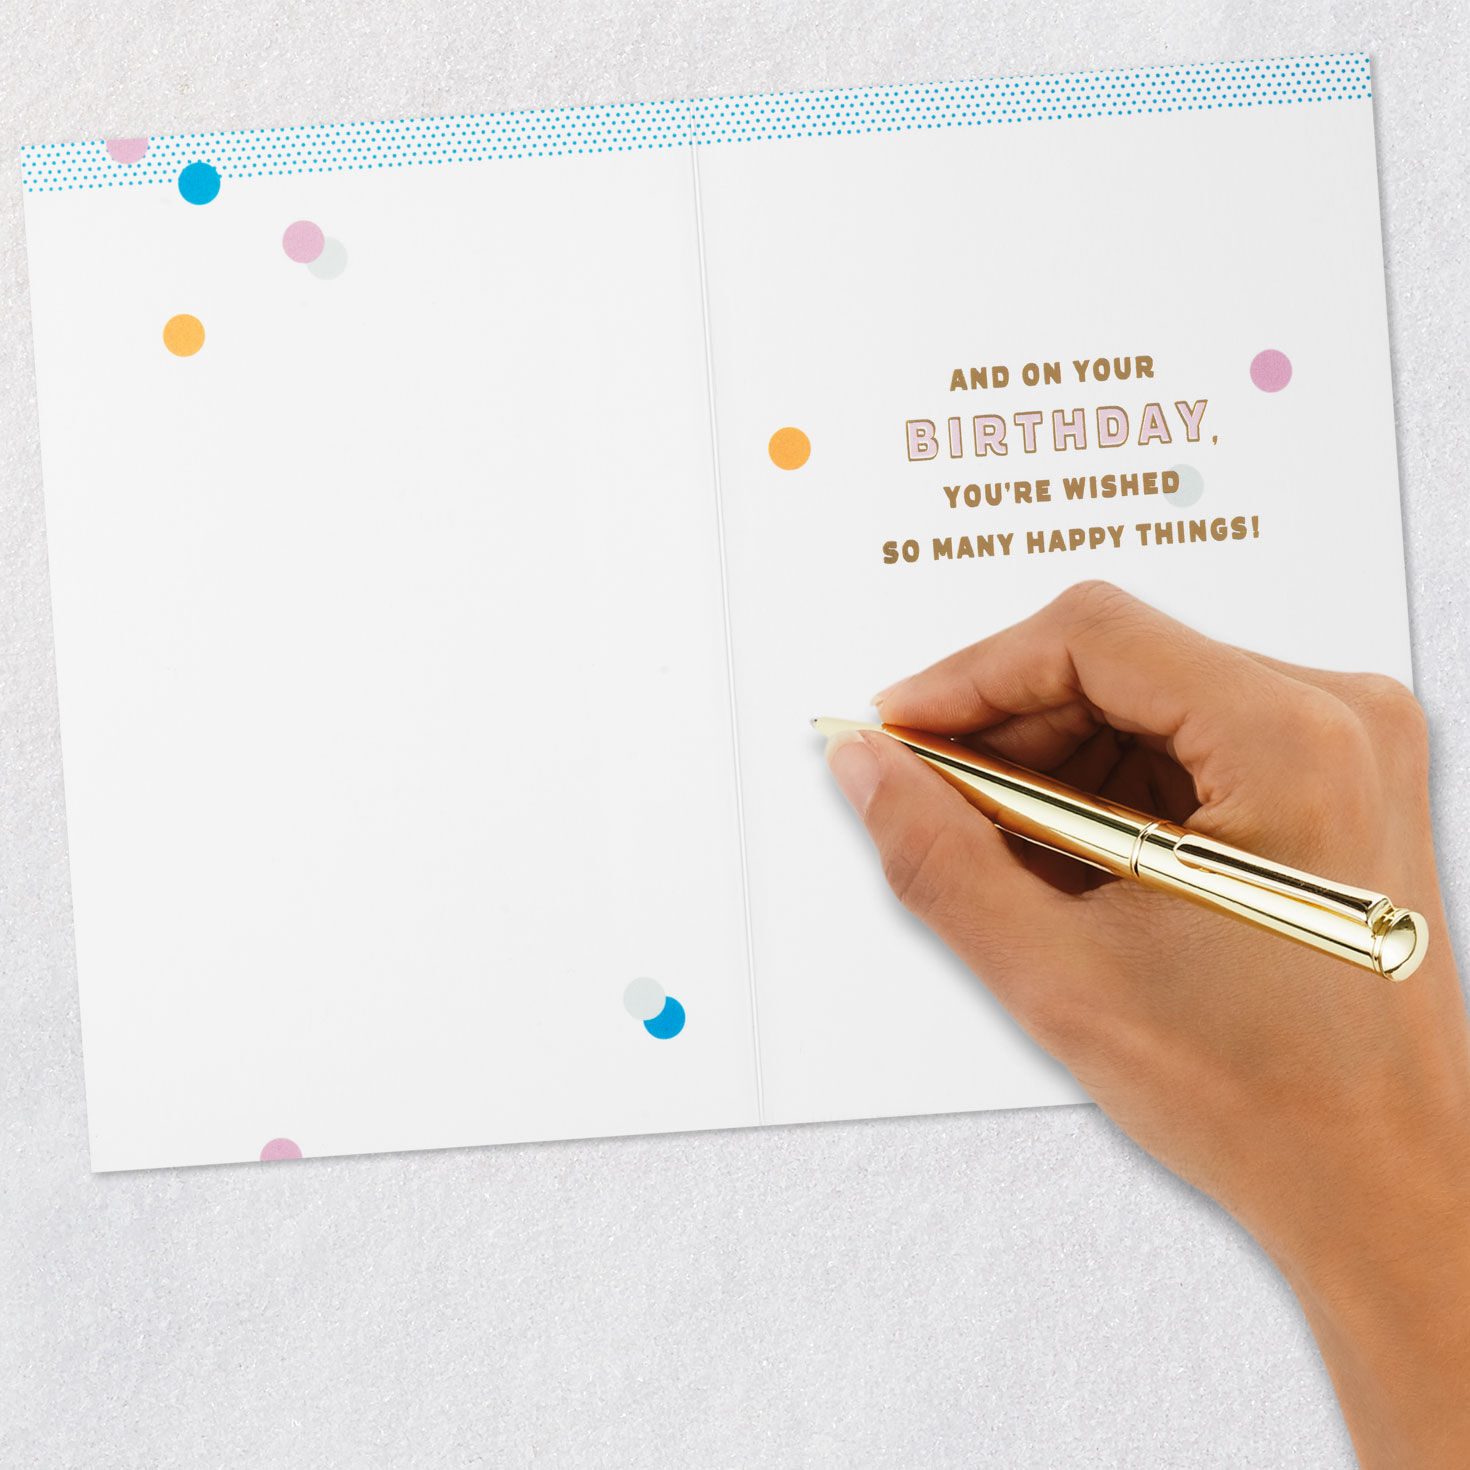 AND ON YOUR
BIRTHDAY,
YOU'RE WISHED
SO MANY HAPPY THINGS!